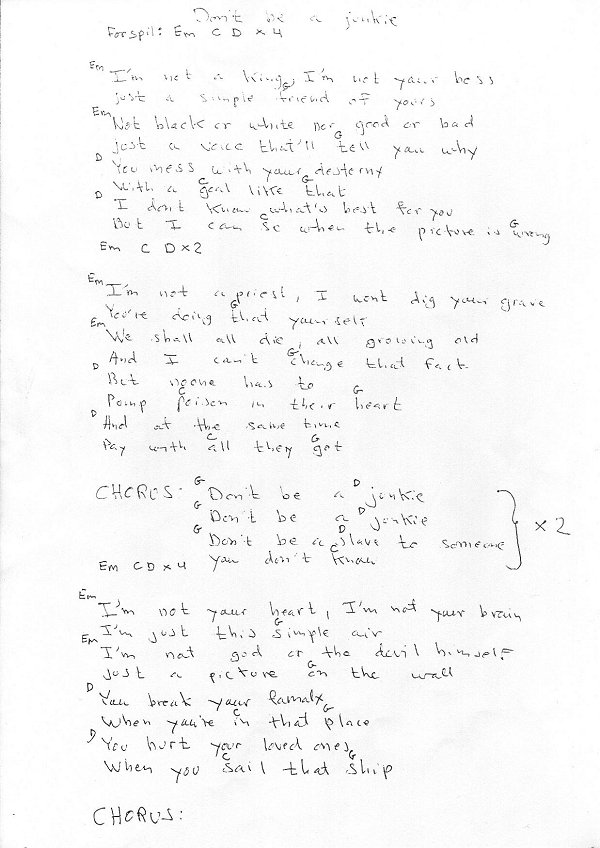 Don't be a junkie
Forspil: Em C D x 4
Em
I'm not a king, I'm not your boss
G
just a simple friend of yours
Em
Not black or white nor good or bad
G
just a voice that'll tell you why
D
You mess with your desteny
C G
D With a goal like that
I dont know what's best for you
C G
But I can se when the picture is wrong
Em C D x 2
Em
I'm not a priest, I wont dig your grave
G
You're doing that yourself
Em
We shall all die, all growing old
G
D And I can't change that fact
But noone has to
C G
Pomp poison in their heart
D
And at the same time
C G
Pay with all they got
G D
CHORUS: Don't be a junkie
G D
Don't be a junkie
G D
Don't be a slave to someone
C
you don't know
x 2
Em C D x 4
Em
I'm not your heart, I'm not your brain
G
I'm just this simple air
Em
I'm not god or the devil himself
G
just a picture on the wall
D
You break your famaly
C G
When you're in that place
D
You hurt your loved ones
C G
When you sail that ship
CHORUS: